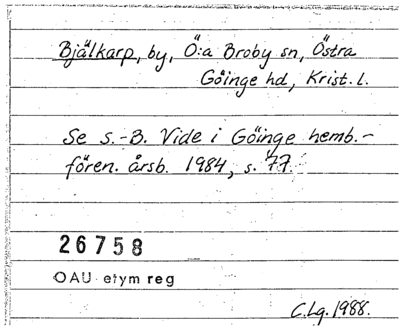 Bjälkarp, by, Ö:a Broby sn, Östra
Göinge hd, Krist. l.
Se S.-B. Vide i Göinge hemb.-
fören. årsb. 1984, s. 77.
26758
OAU etym reg
C.Lg. 1988.